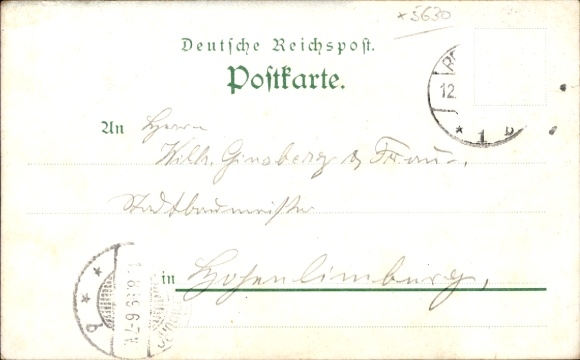 *5630
Deutsche Reichspost.
Postkarte.
12.
* 1 b
An Herrn
Wilh. Ginsberg & Frau,
Stadtbaumeister
in Hohenlimburg,
1.8.99.6-7N.
* * b